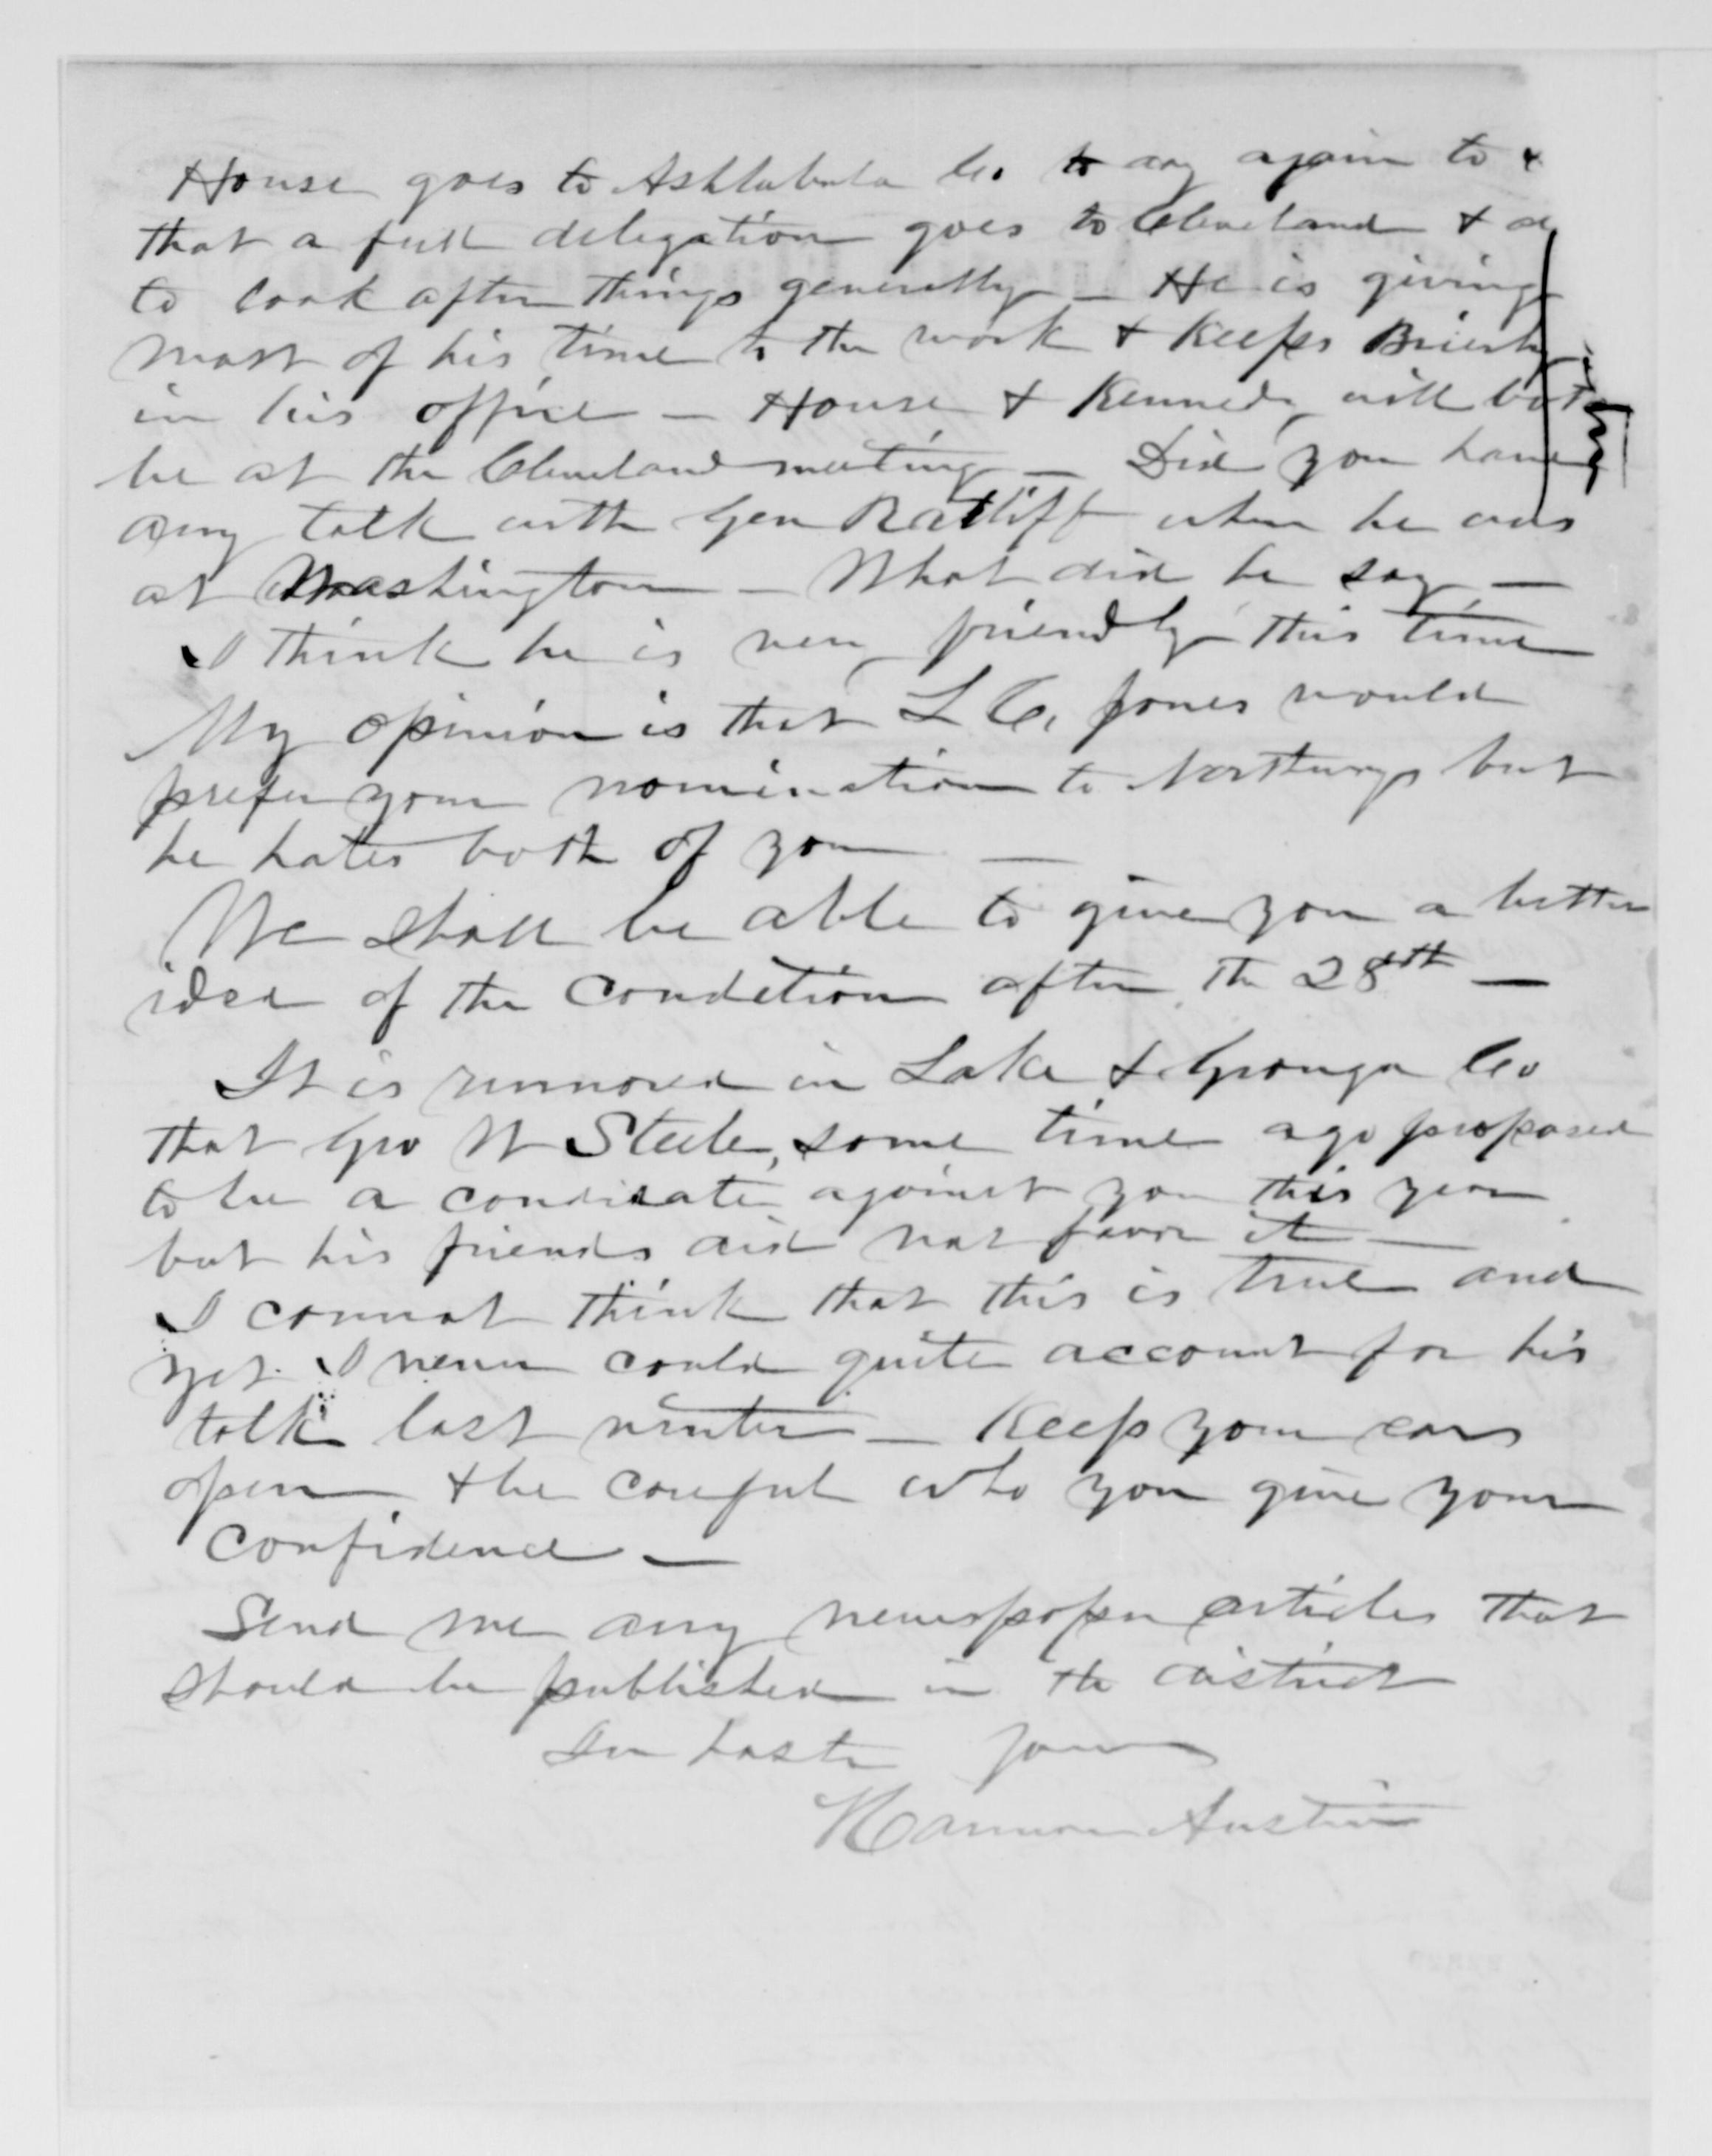 House goes to Ashtabula Co. to day again to
that a full delegation goes to Cleveland &
to look after things generally — He is giving
most of his time to the work & keeps
in his office — House & Kennedy will both
be at the Cleveland meeting — Did you have
any talk with Gen Ratliff when he was
at Washington — What did he say —
I think he is very friendly this time
My opinion is that L C. Jones would
prefer your nomination to Northways but
he hates both of you —
We shall be able to give you a better
idea of the condition after the 28th —
It is rumored in Lake & Geauga Co
that Geo W Steele, some time ago proposed
to be a candidate against you this year
but his friends did not favor it —
I cannot think that this is true and
yet I never could quite account for his
talk last winter — Keep your ears
open & be careful who you give your
confidence —
Send me any newspaper articles that
should be published in the district
In haste Yours
Harmon Austin